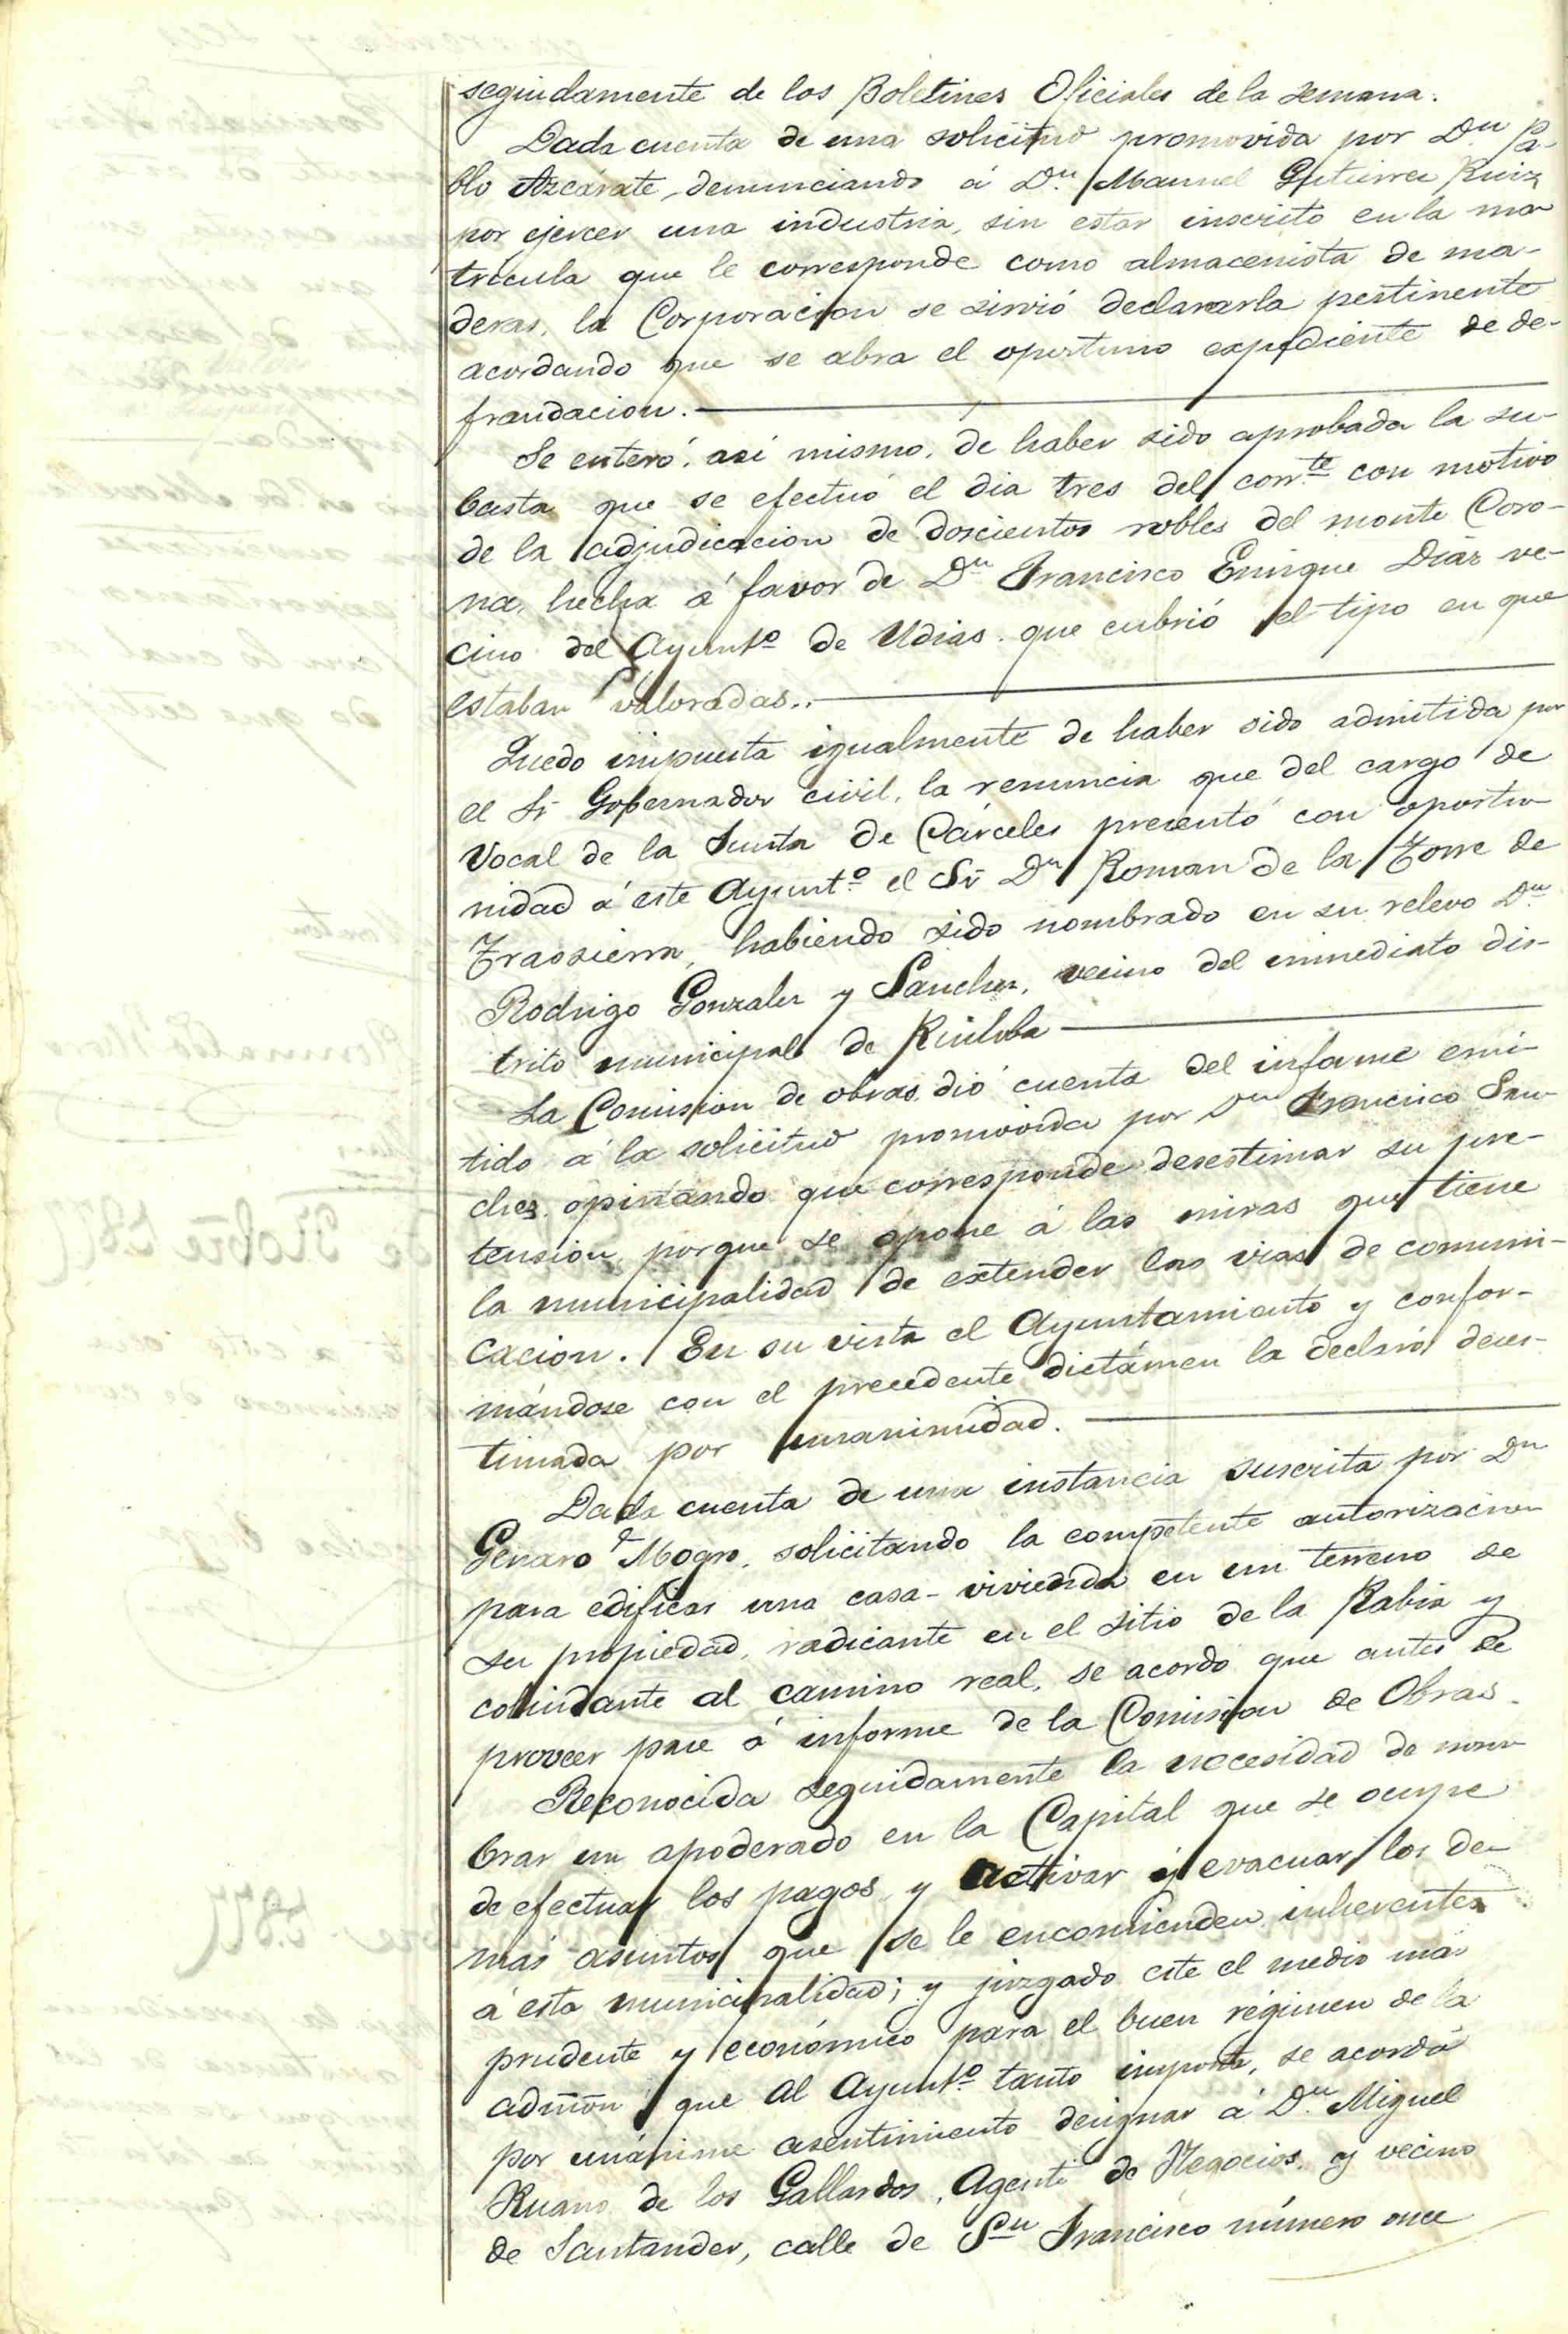 seguidamente de los Boletines Oficiales de la semana.
Dada cuenta de una solicitud promovida por Dn Pa-
blo Azcárate, denunciando á Dn Manuel Gutierrez Ruiz
por ejercer una industria, sin estar inscrito en la ma
tricula que le corresponde como almacenista de ma-
deras, la Corporacion se sirvió declararla pertinente
acordando que se abra el oportuno expediente de de-
fraudacion.
Se enteró, así mismo, de haber sido aprobada la su-
basta que se efectuó el dia tres del corrte con motivo
de la adjudicacion de doscientos robles del monte Coro-
na, hecha á favor de Dn Francisco Enrique Diaz ve-
cino del Ayuntº de Udias que cubrió el tipo en que
estaban valoradas.
Quedo impuesta igualmente de haber sido admitida por
el Sr Gobernador civil, la renuncia que del cargo de
Vocal de la Junta de Cárceles presentó con oportu-
nidad á este Ayuntº el Sr Dn Roman de la Torre de
Trassierra, habiendo sido nombrado en su relevo Dn
Rodrigo Gonzalez y Sanchez, vecino del inmediato dis-
trito municipal de Ruiloba
La Comision de obras dió cuenta del informe emi-
tido á la solicitud promovida por Dn Francisco San-
chez opinando que corresponde desestimar su pre-
tension porque se opone á las miras que tiene
la municipalidad de extender las vias de comuni-
cacion. En su vista el Ayuntamiento y confor-
mándose con el precedente dictámen la declaró deses-
timada por unanimidad.
Dada cuenta de una instancia suscrita por Dn
Genaro Mogro, solicitando la competente autorizacion
para edificar una casa-vivienda en un terreno de
su propiedad, radicante en el sitio de la Rabia y
colindante al camino real, se acordo que antes de
proveer pase á informe de la Comision de Obras.
Reconocida seguidamente la necesidad de nom-
brar un apoderado en la Capital que se ocupe
de efectuar los pagos y activar y evacuar los de-
más asuntos que se le encomienden inherentes
á esta municipalidad; y juzgado este el medio mas
prudente y económico para el buen régimen de la
admon que al Ayuntº tanto importa, se acordó
por unánime asentimiento designar á Dn Miguel
Ruano de los Gallardos, Agente de Negocios y vecino
de Santander, calle de Sn Francisco número once